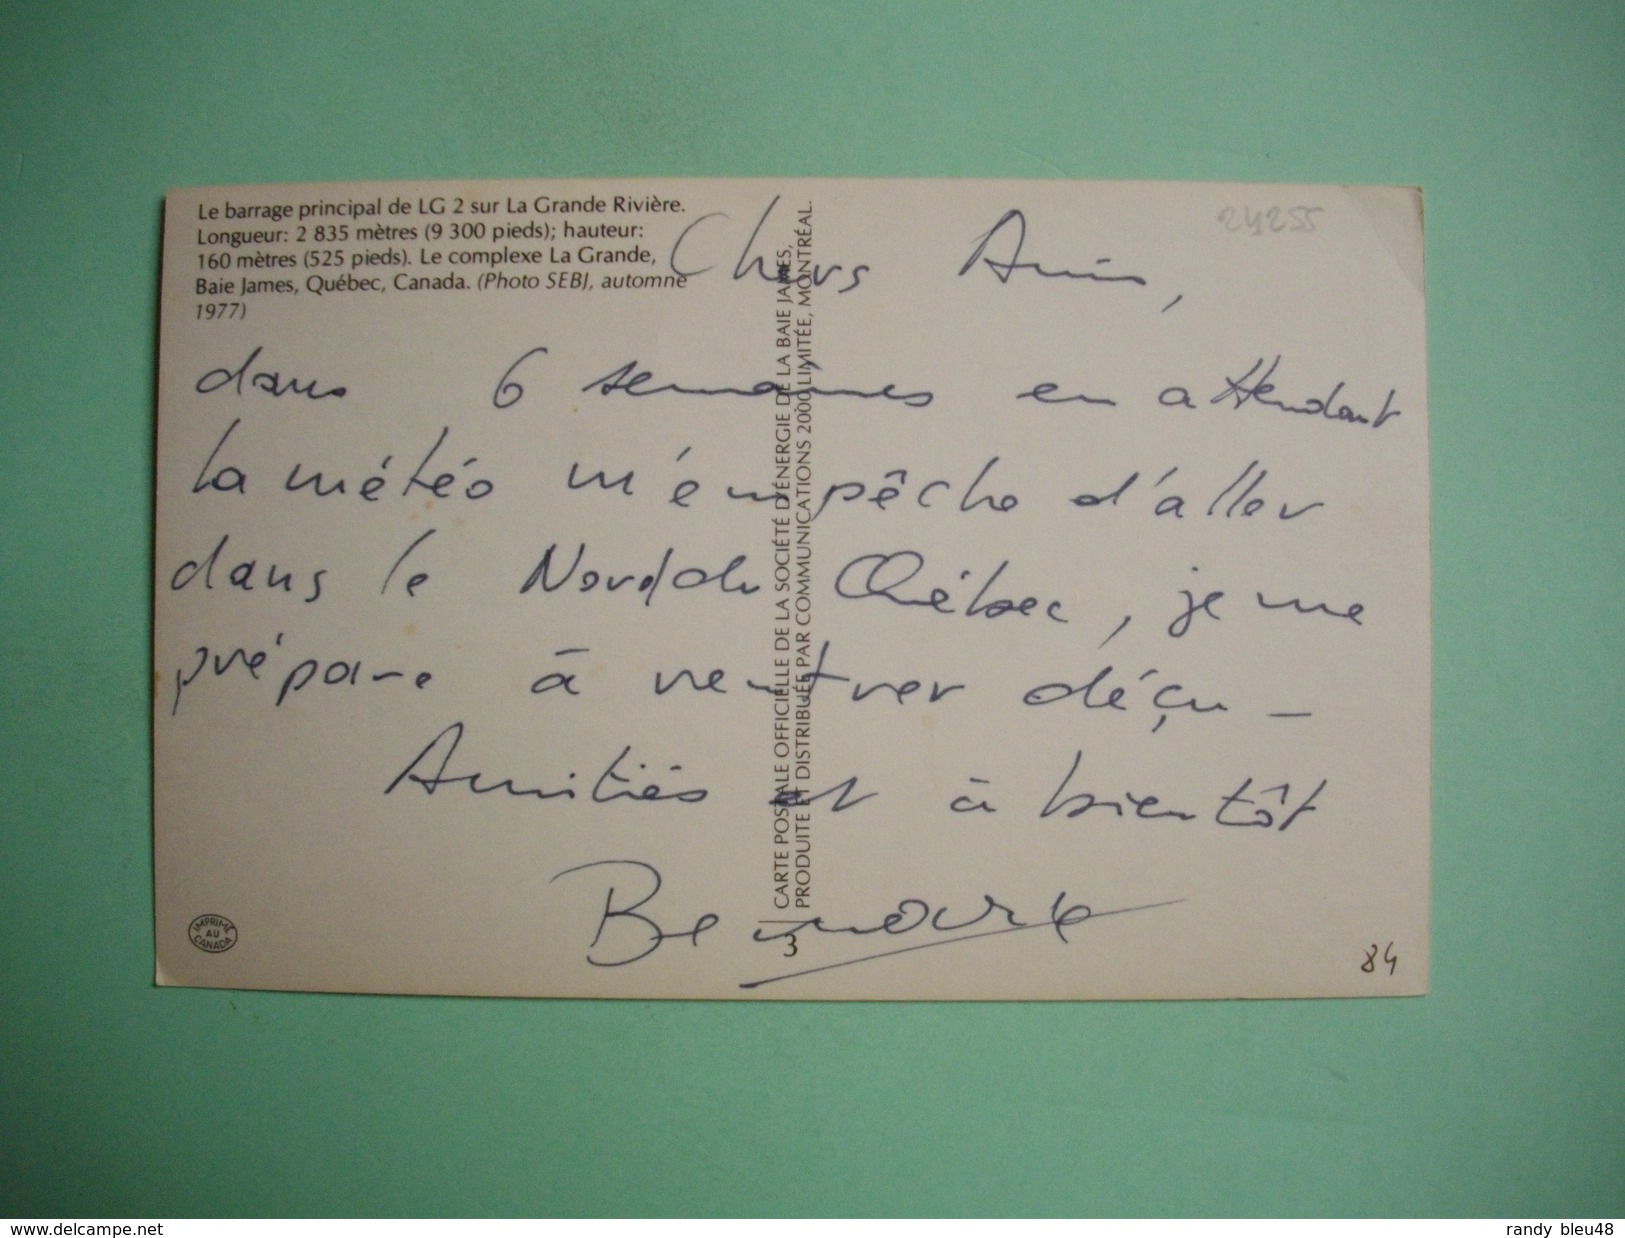 Le barrage principal de LG 2 sur La Grande Rivière.
Longueur: 2 835 mètres (9 300 pieds); hauteur:
160 mètres (525 pieds). Le complexe La Grande,
Baie James, Québec, Canada. (Photo SEBJ, automne
1977)
24255
Chers Amis,
dans 6 semaines en attendant
la météo m'empêche d'aller
dans le Nord du Québec, je me
prépare à rentrer déçu -
Amitiés et à bientôt
CARTE POSTALE OFFICIELLE DE LA SOCIÉTÉ D'ÉNERGIE DE LA BAIE JAMES,
PRODUITE ET DISTRIBUÉE PAR COMMUNICATIONS 2000 LIMITÉE, MONTRÉAL.
3
IMPRIMÉ
AU
CANADA
84
www.delcampe.net
randy_bleu48